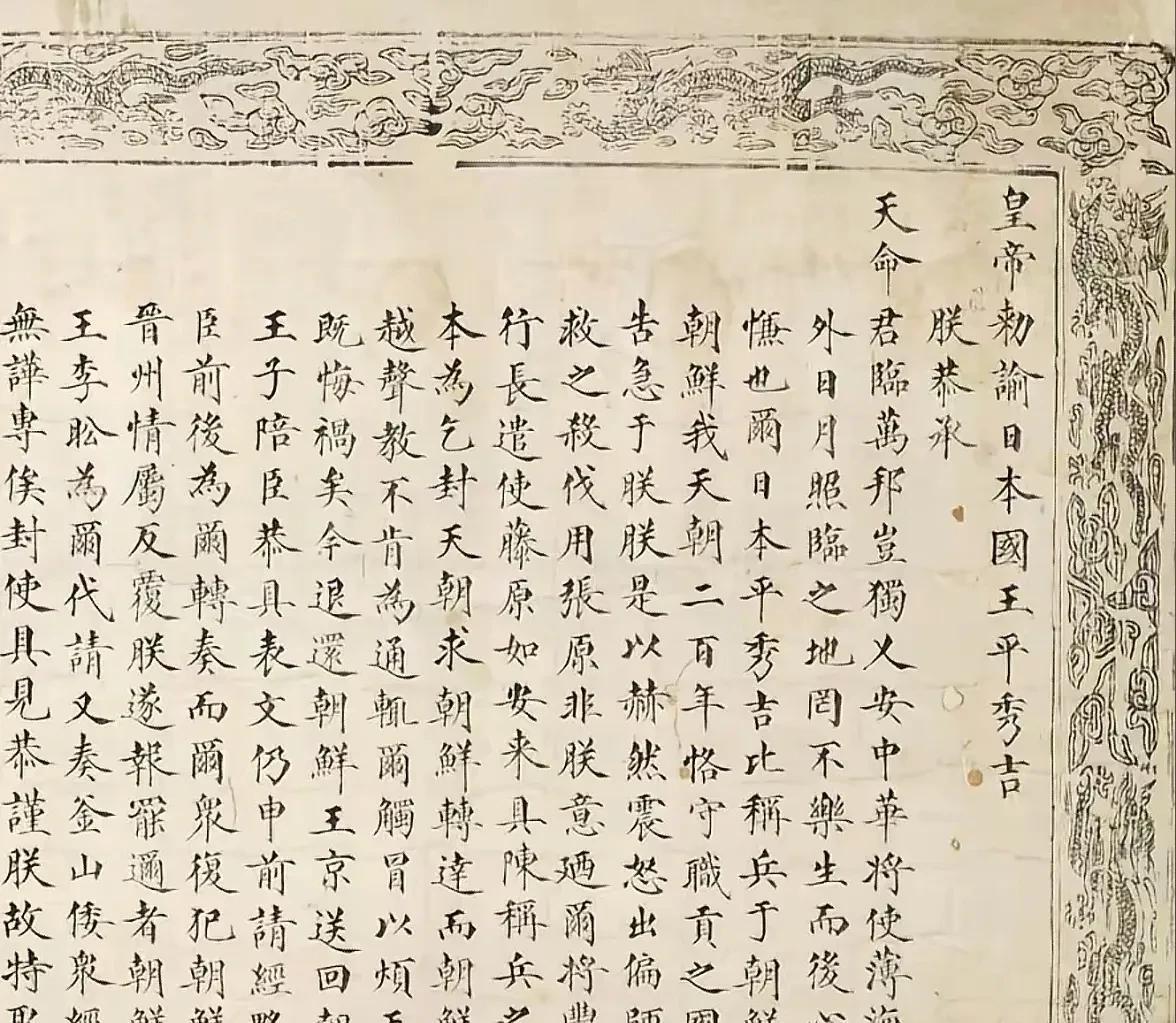 皇帝勅諭日本國王平秀吉
朕恭承
天命君臨萬邦豈獨乂安中華將使薄海
外日月照臨之地罔不樂生而後心
慊也爾日本平秀吉比稱兵于朝鮮
朝鮮我天朝二百年恪守職貢之國
告急于朕朕是以赫然震怒出偏師
救之殺伐用張原非朕意廼爾將豊
行長遣使藤原如安来具陳稱兵之
本為乞封天朝求朝鮮轉達而朝鮮
越聲教不肯為通輒爾觸冒以煩天
既悔禍矣今退還朝鮮王京送回朝
王子陪臣恭具表文仍申前請經略
臣前後為爾轉奏而爾衆復犯朝鮮
晉州情屬反覆朕遂報罷邇者朝鮮
王李昖為爾代請又奏釜山倭衆經
無譁專俟封使具見恭謹朕故特取